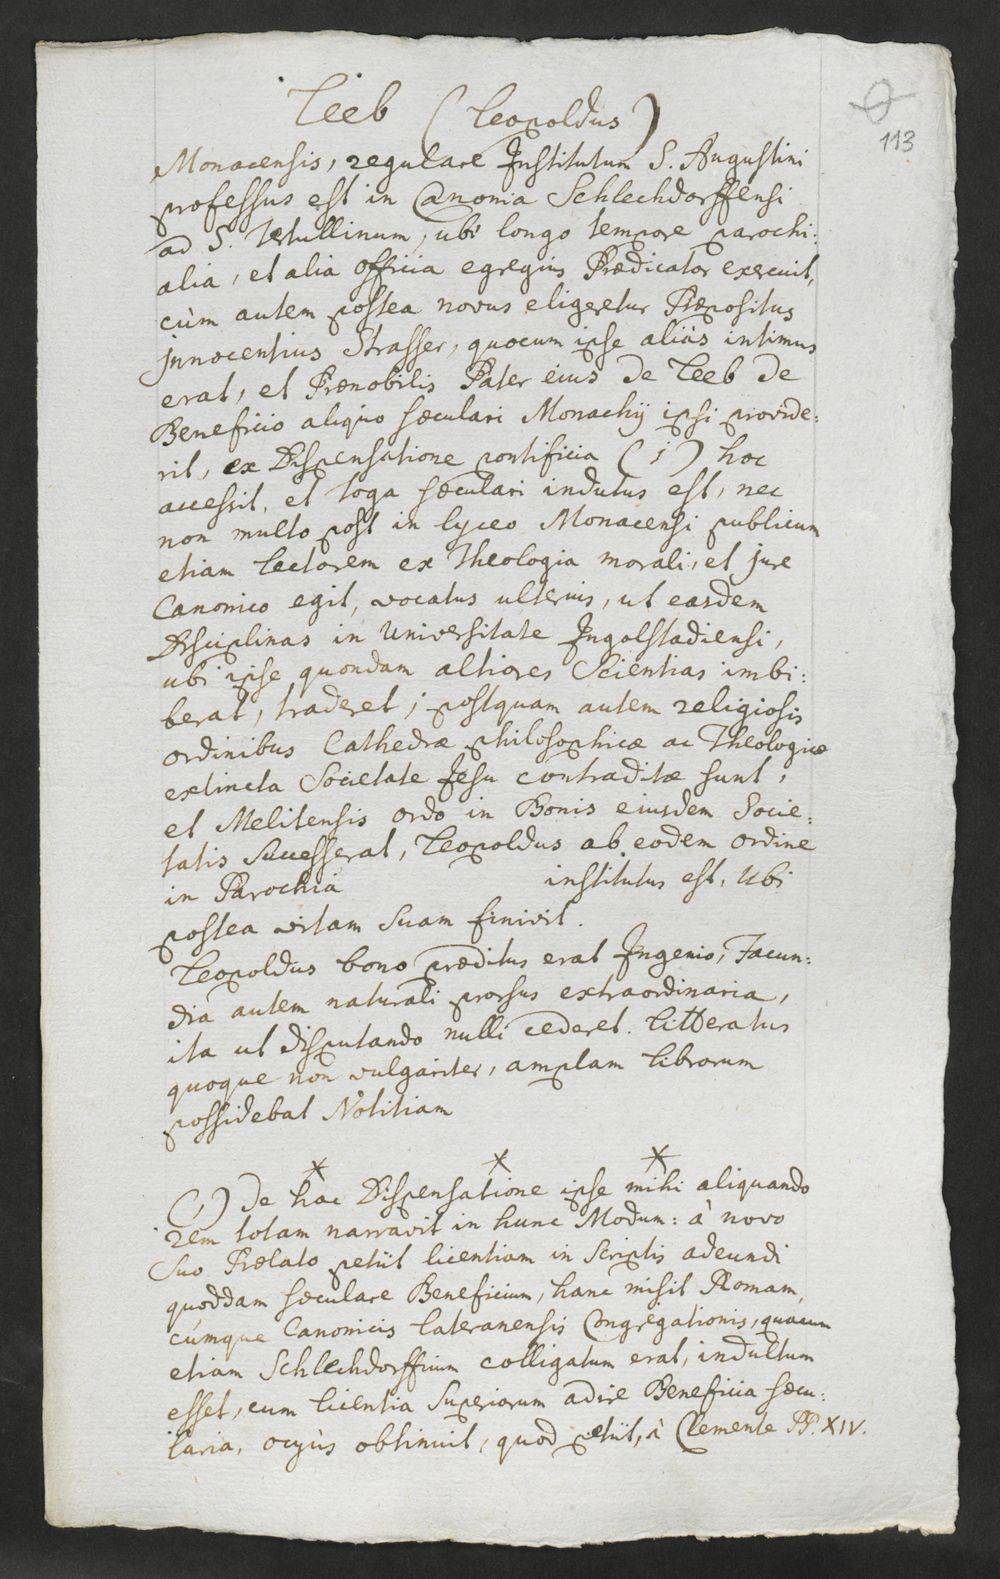 Leeb (Leopoldus)
113
Monacensis, regulare Institutum S. Augustini
professus est in Canonia Schlechdorffensi
ad S. Tertullinum, ubi longo tempore parochi:
alia, et alia officia egregius Prædicator exercuit,
cùm autem postea novus eligeretur Præpositus
Innocentius Strasser, quocum ipse aliàs intimus
erat, et Prænobilis Pater eius de Leeb de
Beneficio aliquo sæculari Monachij ipsi provide:
rit, ex Dispensatione pontificia (1) hoc
accessit, et toga sæculari indutus est, nec
non multo post in lyceo Monacensi publicum
etiam Lectorem ex Theologia morali, et jure
Canonico egit, vocatus ulterius, ut easdem
Disciplinas in Universitate Ingolstadiensi,
ubi ipse quondam altiores Scientias imbi:
berat, traderet; postquam autem religiosis
ordinibus Cathedræ philosophicæ ac Theologicæ
extincta Societate Jesu contraditæ sunt,
et Melitensis ordo in Bonis eiusdem Socie:
tatis Successerat, Leopoldus ab eodem ordine
in Parochia institutus est, Ubi
postea vitam Suam finivit.
Leopoldus bono præditus erat Ingenio, Facun:
dia autem naturali prorsus extraordinaria,
ita ut disputando nulli cederet. Litteratus
quoque non vulgariter, amplam Librorum
possidebat Notitiam
(1) De hac Dispensatione ipse mihi aliquando
rem totam narravit in hunc Modum: à novo
Suo Prælato petiit licentiam in Scriptis adeundi
quoddam sæculare Beneficium, hanc misit Romam,
cúmque Canonicis Lateranensis Congregationis, quacum
etiam Schlechdorffium colligatum erat, indultum
esset, cum licentia Superiorum adire Beneficia sæcu:
laria, ocyùs obtinuit, quod petiit, à Clemente PP. XIV.